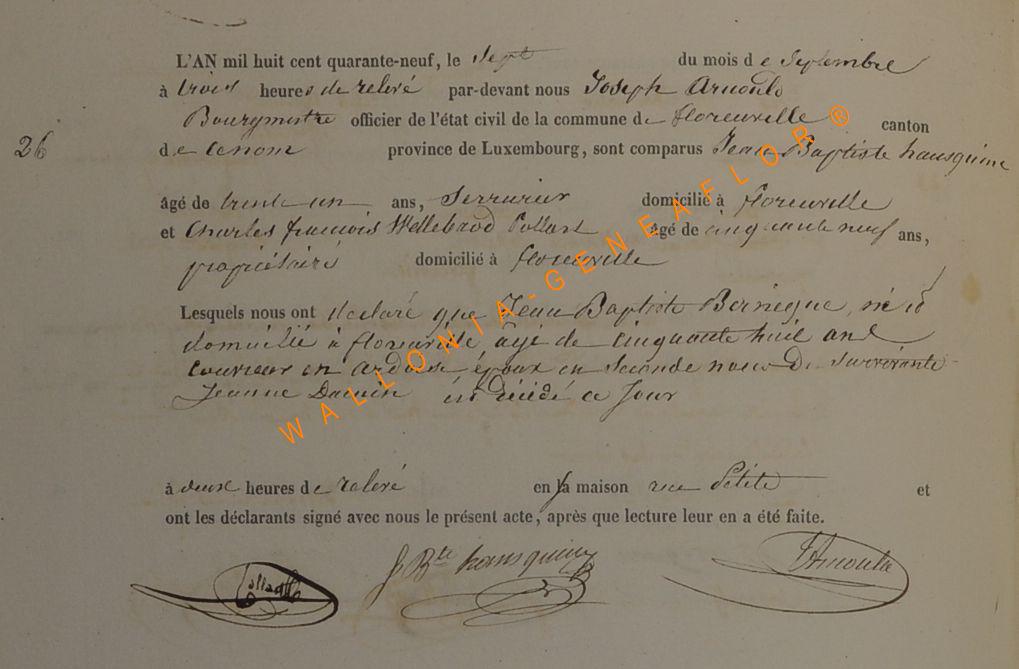 L'AN mil huit cent quarante-neuf, le sept du mois de Septembre
à trois heures de relevé par-devant nous Joseph Arnould
Bourgmestre officier de l'état civil de la commune de florenville canton
26
de ce nom province de Luxembourg, sont comparus Jean Baptiste hansquine
âgé de trente un ans, Serrurier domicilié à florenville
et Charles françois Wellebrod Pollart âgé de cinquante neuf ans,
propriétaire domicilié à florenville
Lesquels nous ont declaré que Jean Baptiste Bernique, né
domicilié à florenville agé de cinquante huit ans
couvreur en ardoise époux en seconde noces de Survivante
Jeanne est décidé ce Jour
à deux heures de relevé en sa maison rue Petite et
ont les déclarants signé avec nous le présent acte, après que lecture leur en a été faite.
J Bte hansquine JArnould
WALLONIA-GENEAFLOR®